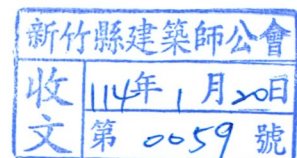 新竹縣建築師公會
收文
114年1月20日
第0059號